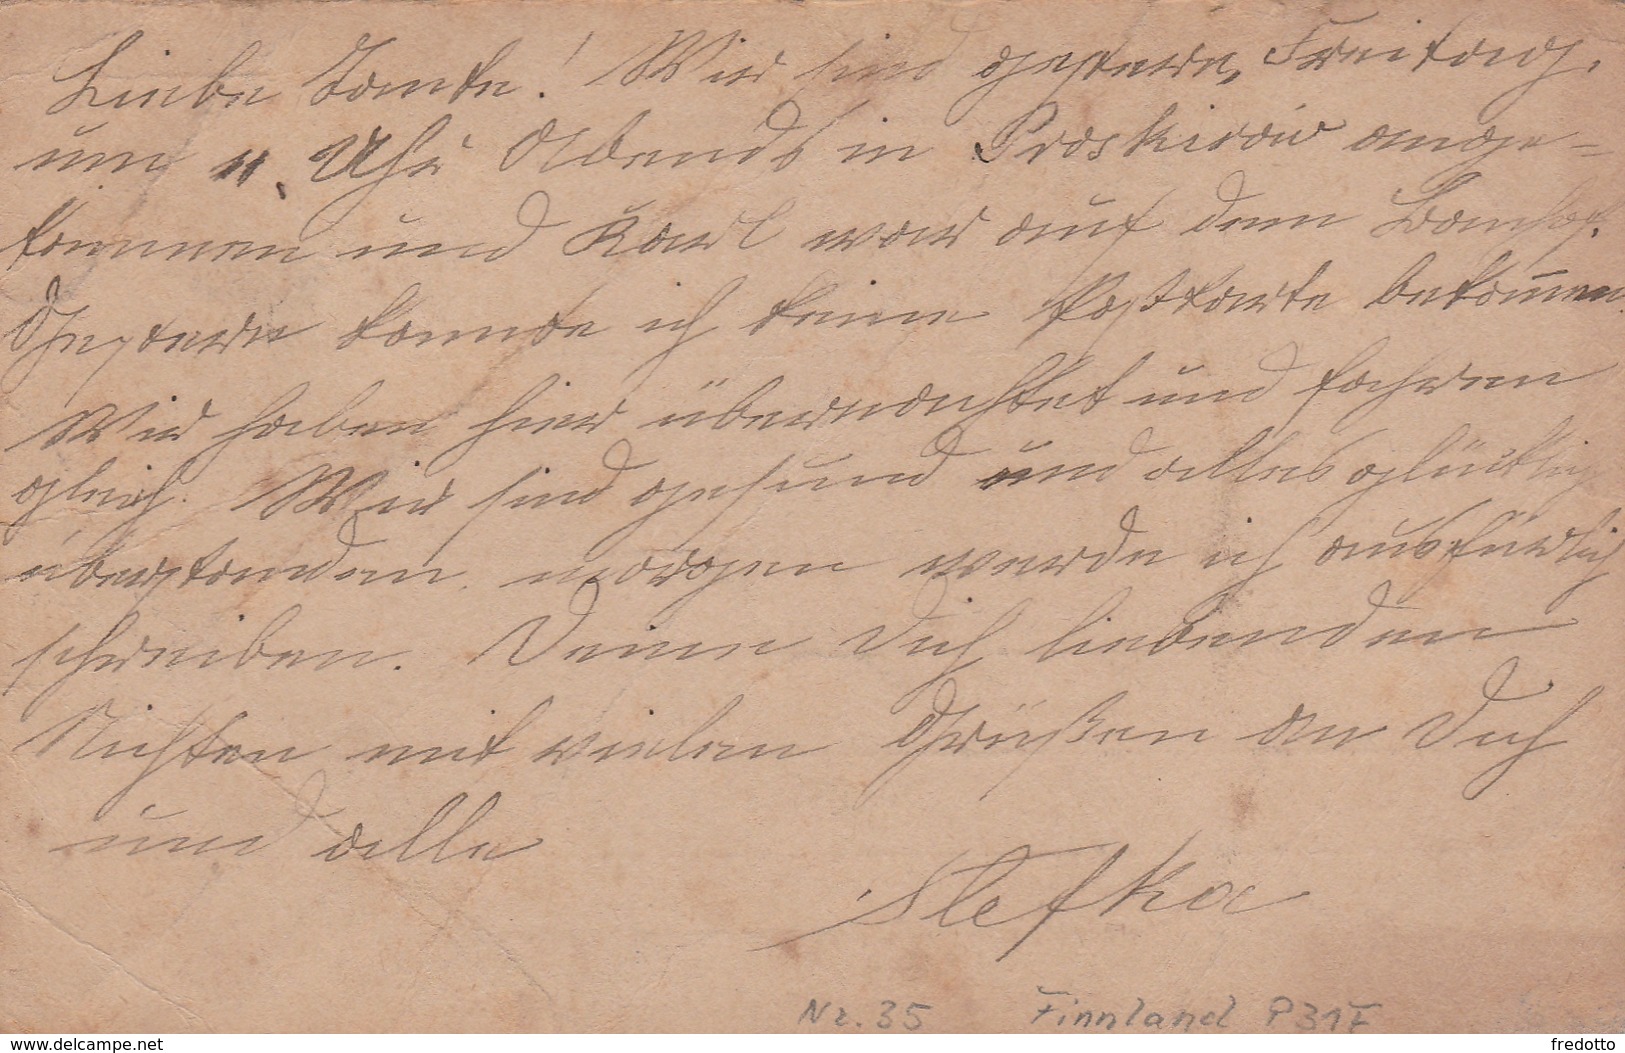 Liebe Tante! Wir sind gestern, Freitag,
um 11. Uhr Abends in Proskirow ange=
kommen und Karl war auf dem Banhof.
Gestern konnte ich keine Postkarte bekom̅en.
Wir haben hier übernachtet und fahren
gleich. Wir sind gesund und alles glücklich
überstanden. morgen werde ich ausfürlich
schreiben. Deine Dich liebenden
Nichten mit vielen Grüßen an Dich
und alle
Stefka
Nr. 35 Finnland P31F
www.delcampe.net
fredotto